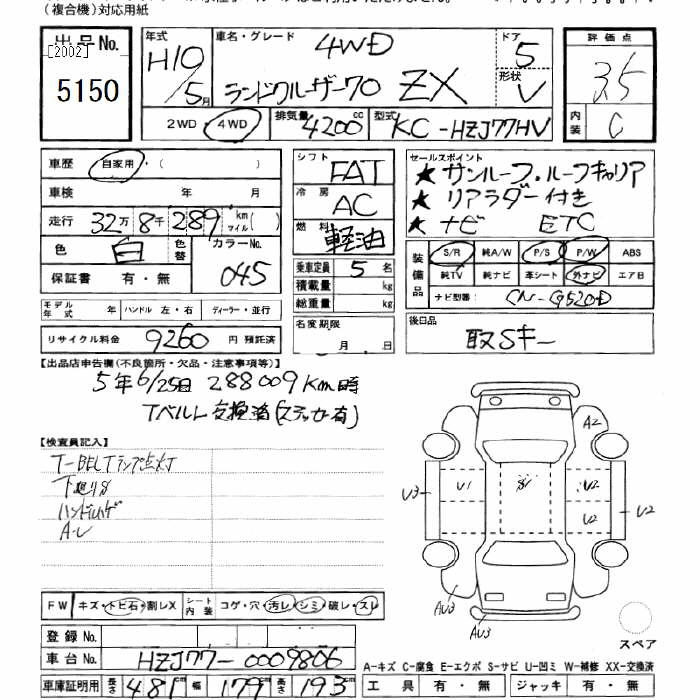 (複合機)対応用紙
出品No.
[2002]
5150
年式 H10/5月
車名・グレード 4WD
ランドクルーザー70 ZX
ドア 5
形状 V
2WD・4WD
排気量 4200cc
型式 KC-HZJ77HV
評価点 3.5
内装 C
車歴 自家用・( )
車検 年 月
走行 32万8千289km マイル( )
色 白 色替 カラーNo. 045
保証書 有・無
モデル年式 年 ハンドル 左・右 ディーラー・並行
リサイクル料金 9260円 預託済
シフト FAT
冷房 AC
燃料 軽油
乗車定員 5名
積載量 kg
総重量 kg
名変期限 月 日
セールスポイント
★サンルーフ・ルーフキャリア
★リアラダー付き
★ナビ ETC
装備品 S/R 純A/W P/S P/W ABS
純TV 純ナビ 革シート 外ナビ エア日
ナビ型番: CN-G520D
後日品
取Sキー
【出品店申告欄(不良箇所・欠品・注意事項等)】
5年6/25日 288009Km時
Tベルト交換済(ステッカー有)
【検査員記入】
T-BELTランプ点灯
下廻りS
ハンドルハゲ
A-U
A2
U3 U1 S1 U2 U2
U2
AU3
AU3
スペア
FW キズ・トビ石・割レX シート内装 コゲ・穴・汚レ・シミ・破レ・スレ
登録No.
車台No. HZJ77-0009806
A-キズ C-腐食 E-エクボ S-サビ U-凹ミ W-補修 XX-交換済
車庫証明用 長さ 481 幅 179 高さ 193 工具 有・無 ジャッキ 有・無